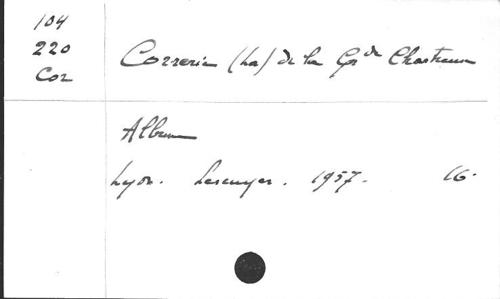 104
220
Cor
Correrie (La) de la Gr de Chartreuse
Album
Lyon. Lescuyer. 1957. 16.